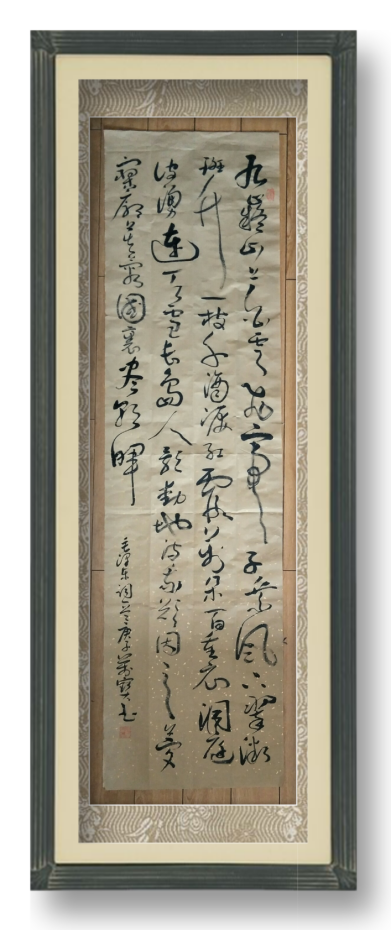 九嶷山上白云飞帝子乘风下翠微
斑竹一枝千滴淚红霞万朵百重衣洞庭
波湧連天雪长島人歌動地诗我欲因之梦
寥廓芙蓉國裏尽朝暉
毛澤東词庚子书